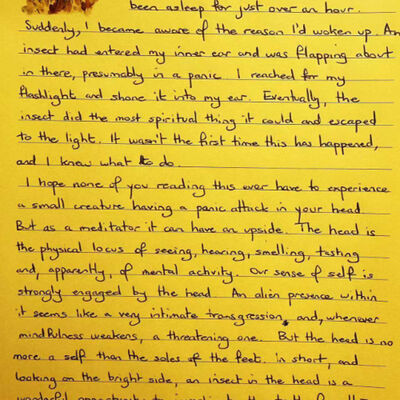 been asleep for just over an hour.
Suddenly, I became aware of the reason I'd woken up. An
insect had entered my inner ear and was flapping about
in there, presumably in a panic. I reached for my
flashlight and shone it into my ear. Eventually, the
insect did the most spiritual thing it could and escaped
to the light. It wasn't the first time this has happened,
and I knew what to do.
I hope none of you reading this ever have to experience
a small creature having a panic attack in your head.
But as a meditator it can have an upside. The head is
the physical locus of seeing, hearing, smelling, tasting
and, apparently, of mental activity. Our sense of self is
strongly engaged by the head. An alien presence within
it seems like a very intimate transgression, and, whenever
mindfulness weakens, a threatening one. But the head is no
more a self than the soles of the feet. In short, and
looking on the bright side, an insect in the head is a
wonderful opportunity to